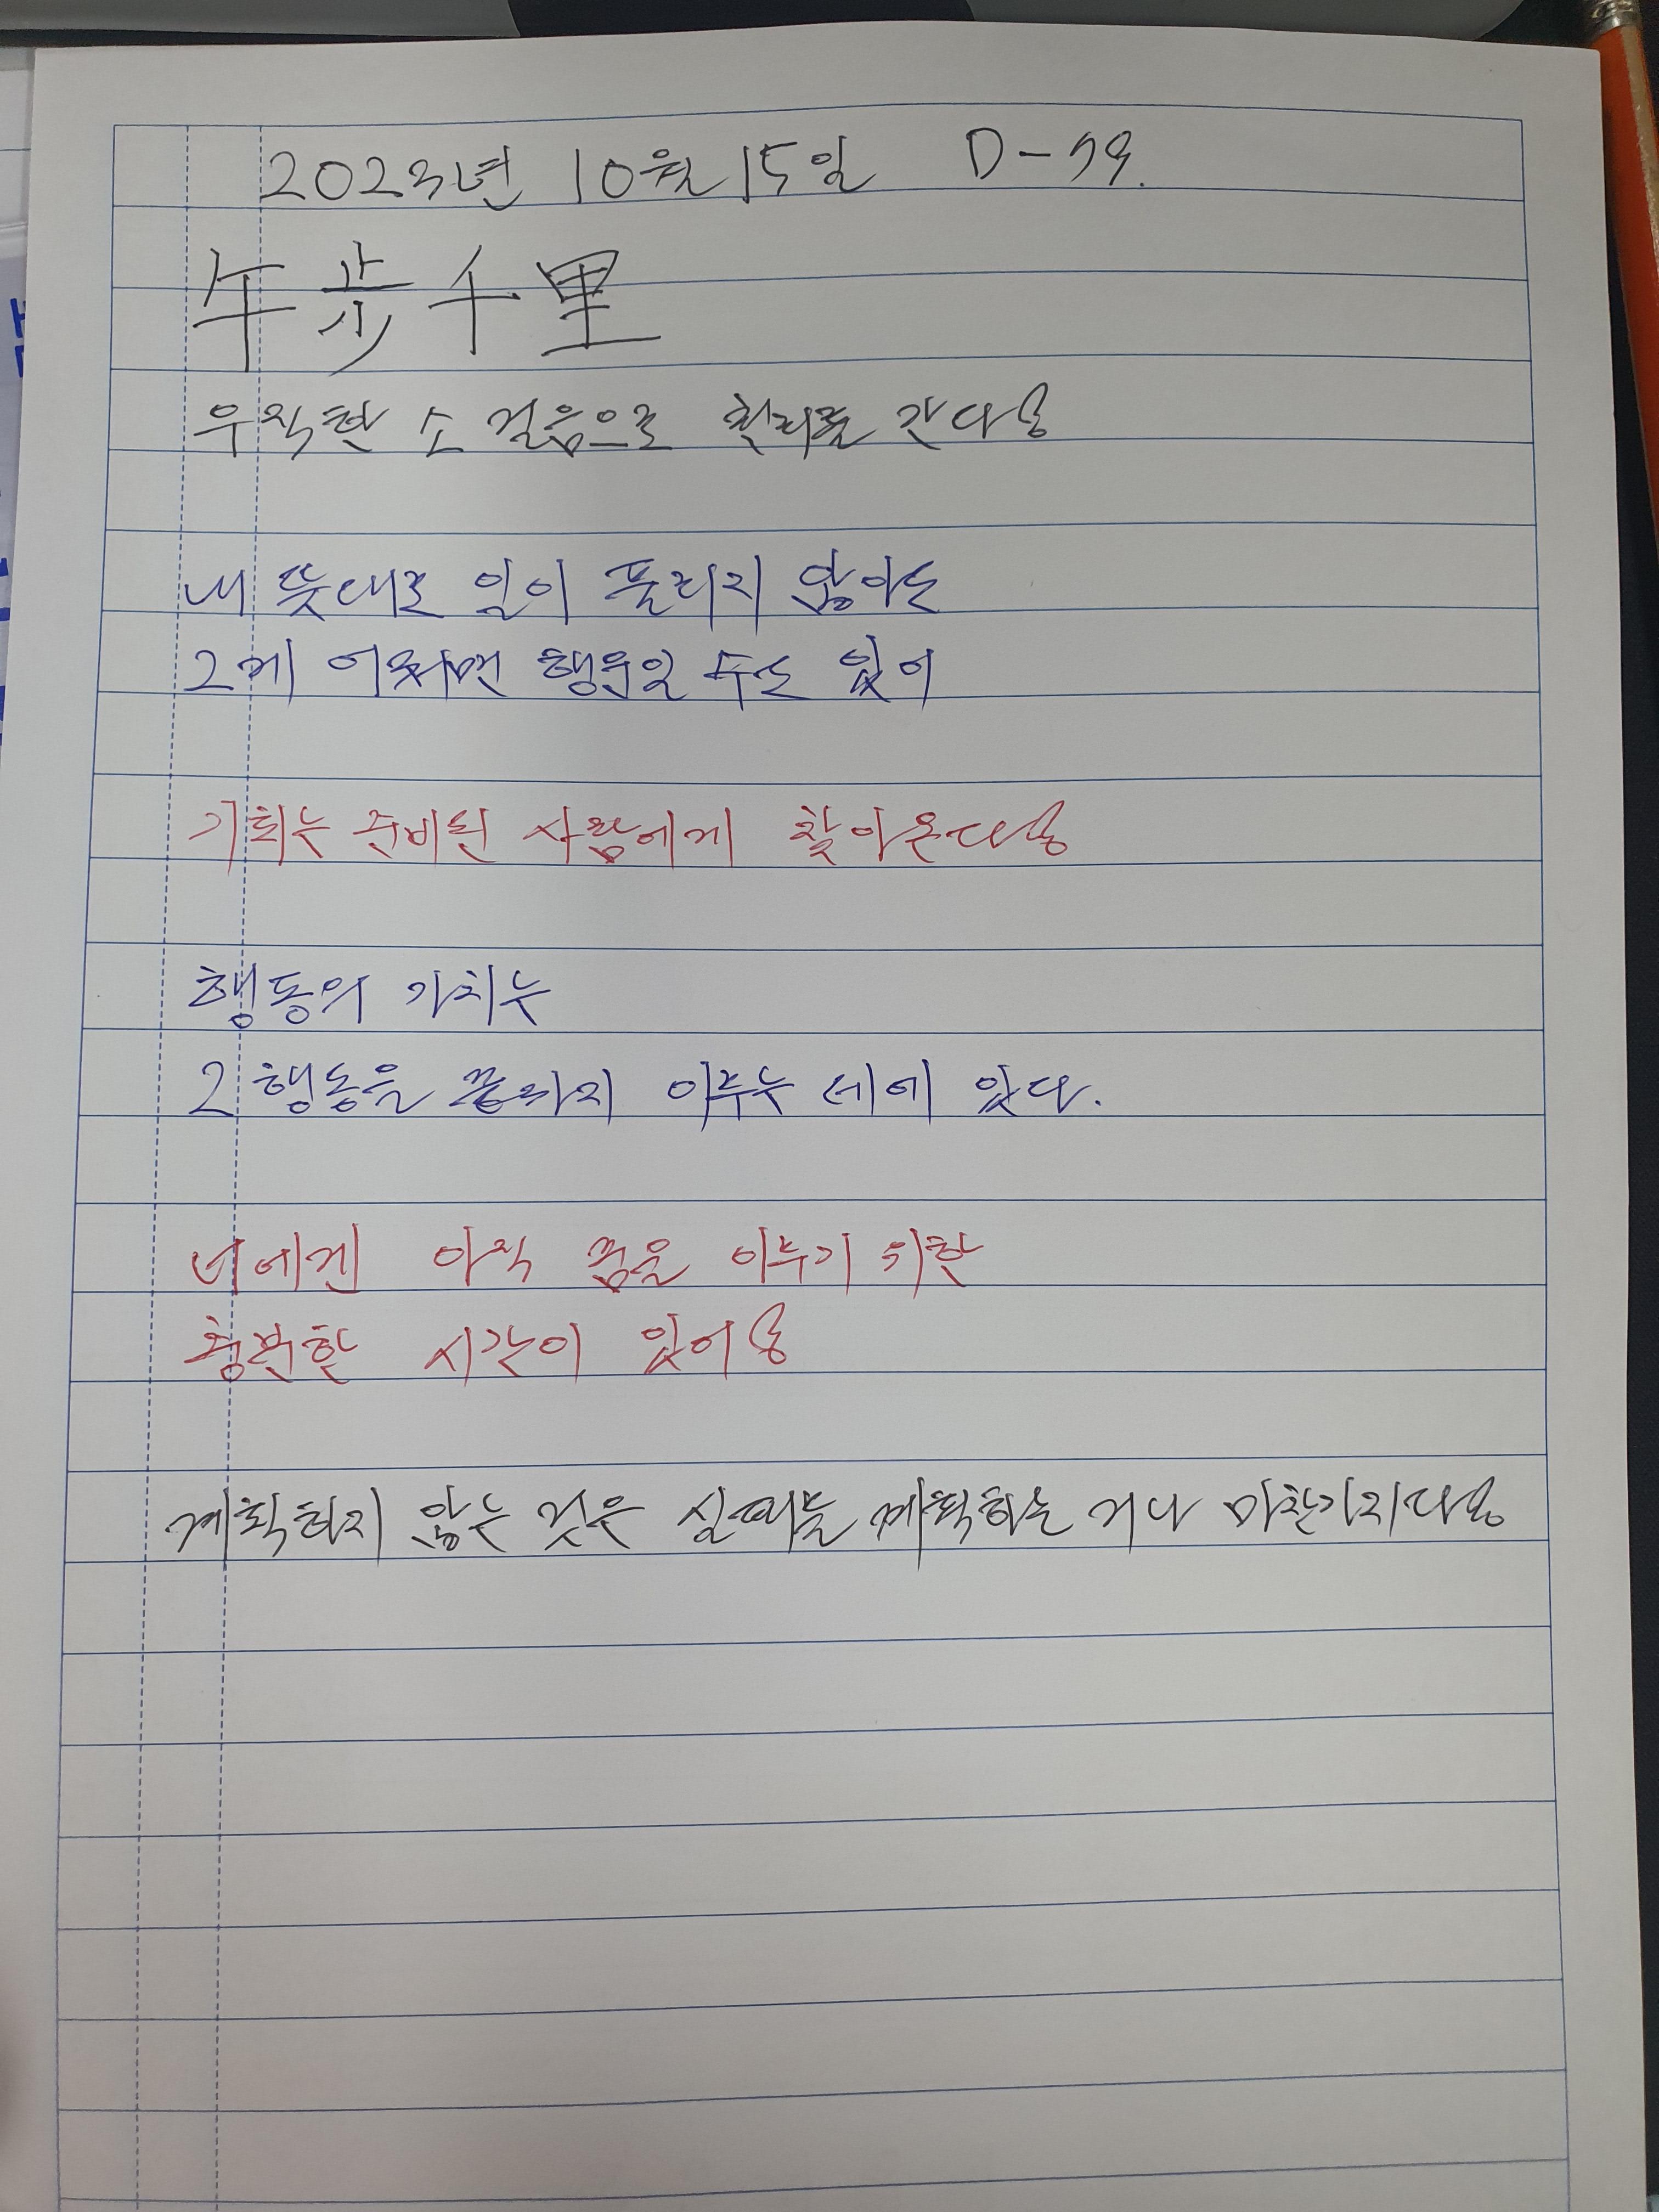 2023년 10월 15일 D-79.
午步千里
우직한 소 걸음으로 천리를 간다
내 뜻대로 일이 풀리지 않아도
그게 어쩌면 행운일 수도 있어
기회는 준비된 사람에게 찾아온다
행동의 가치는
그 행동을 끝까지 이루는 데에 있다.
너에겐 아직 꿈을 이루기 위한
충분한 시간이 있어
계획하지 않는 것은 실패를 계획하는 거나 마찬가지다